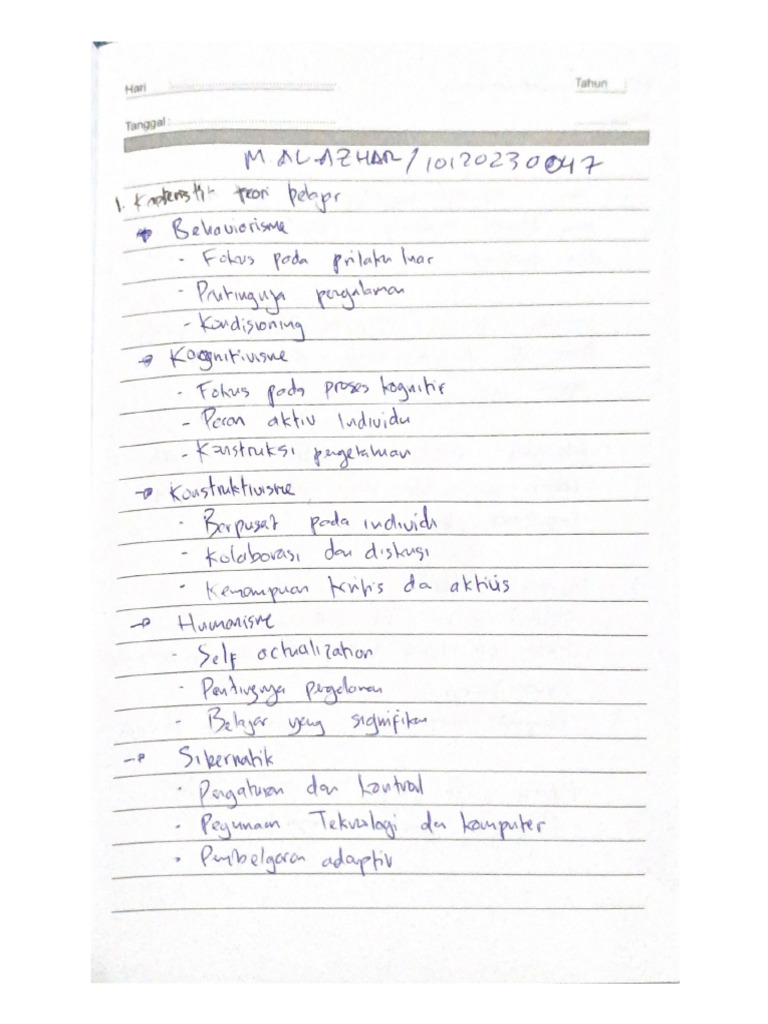 Hari
Tahun
Tanggal :
M. AL AZHAR / 10120230047
1. Karteristik teori belajar
Behaviorisme
- Fokus pada prilaku luar
- Pentingnya pengalaman
- Kondisioning
Kognitivisme
- Fokus pada proses kognitif
- Peran aktiv individu
- Konstruksi pengetahuan
Konstruktivisme
- Berpusat pada individu
- Kolaborasi dan diskusi
- Kemampuan kritis da aktivis
Humanisme
- Self actualization
- Pentingnya pengalaman
- Belajar yang signifikan
Sibernatik
- Pengaturan dan kontrol
- Pegunaan Teknologi dan komputer
- Pembelajaran adaptiv